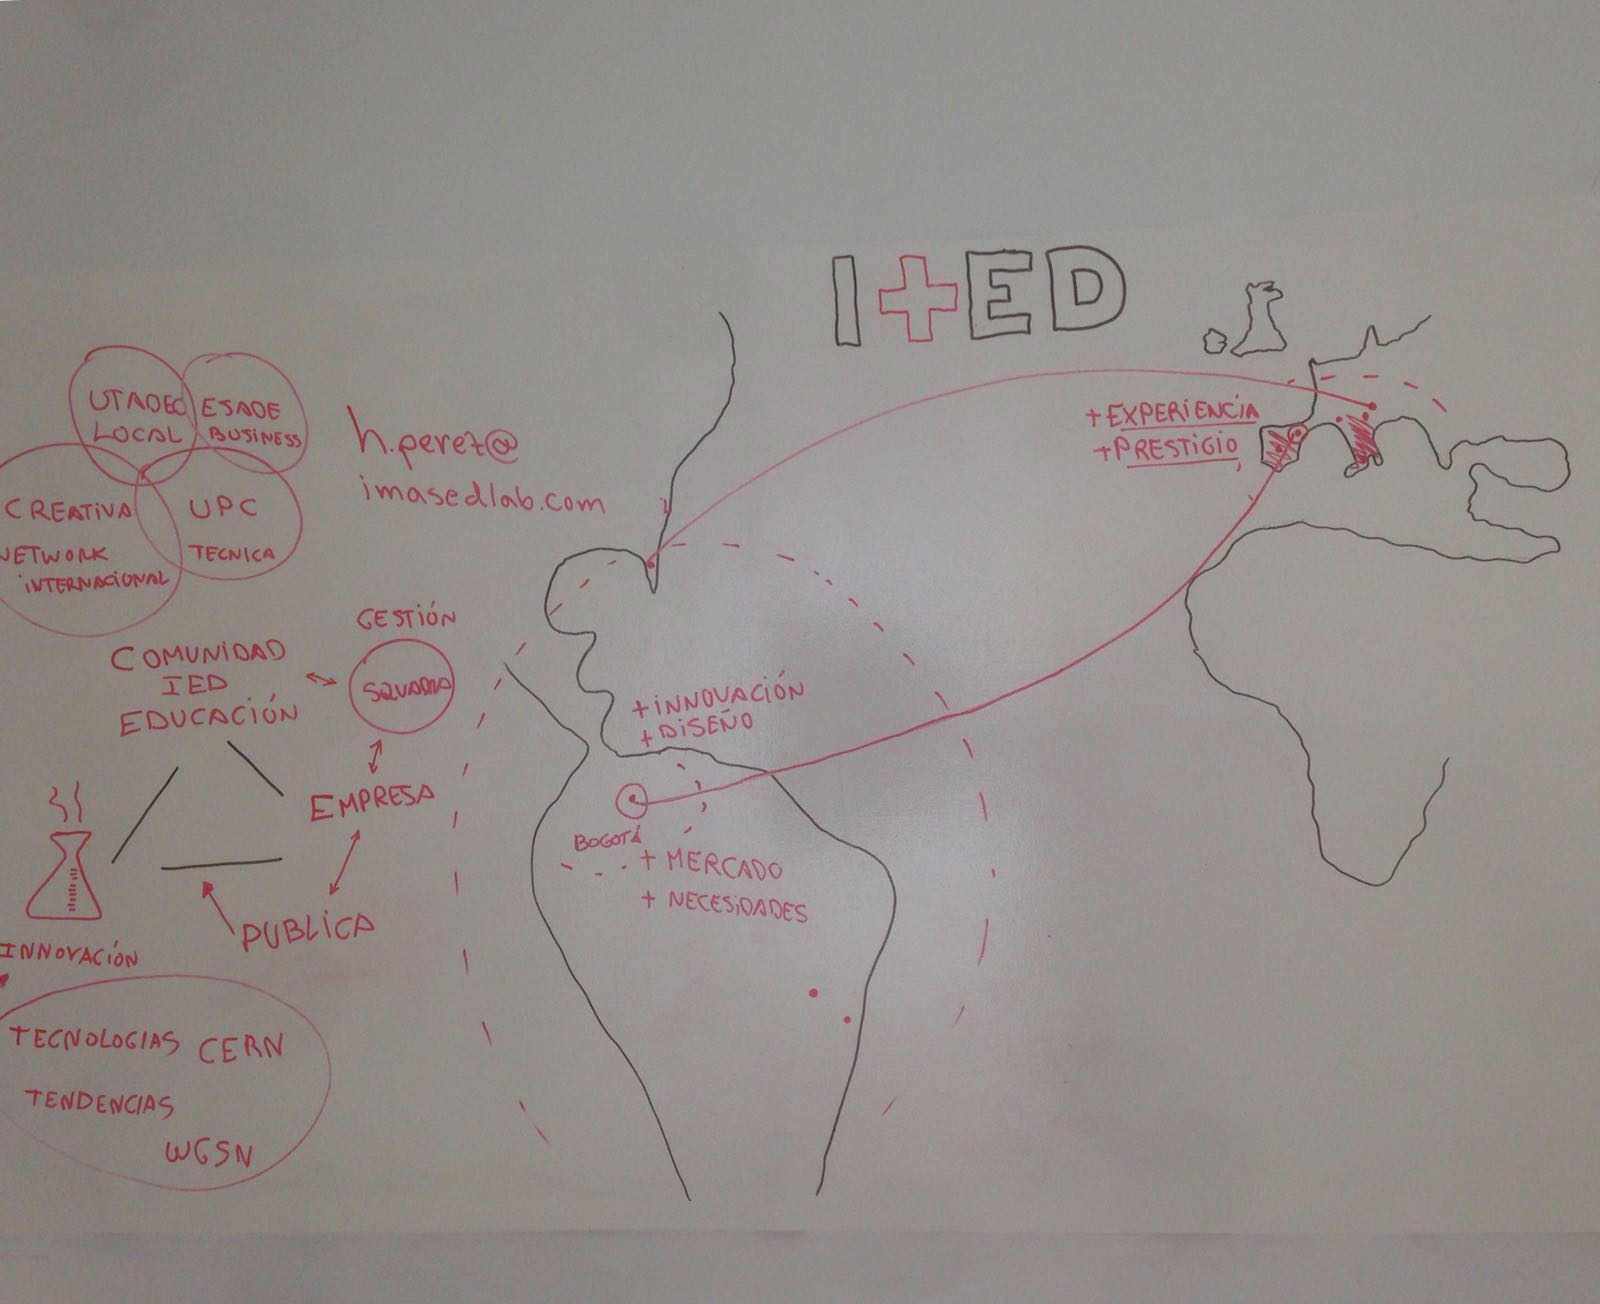 I+ED
UTADEO
LOCAL
ESADE
BUSINESS
CREATIVA
NETWORK
INTERNACIONAL
UPC
TECNICA
h.perez@
imasedlab.com
+ EXPERIENCIA
+ PRESTIGIO
COMUNIDAD
IED
EDUCACIÓN
GESTIÓN
SQUADRA
EMPRESA
PUBLICA
INNOVACIÓN
TECNOLOGIAS CERN
TENDENCIAS
WGSN
+ INNOVACIÓN
+ DISEÑO
BOGOTÁ
+ MERCADO
+ NECESIDADES